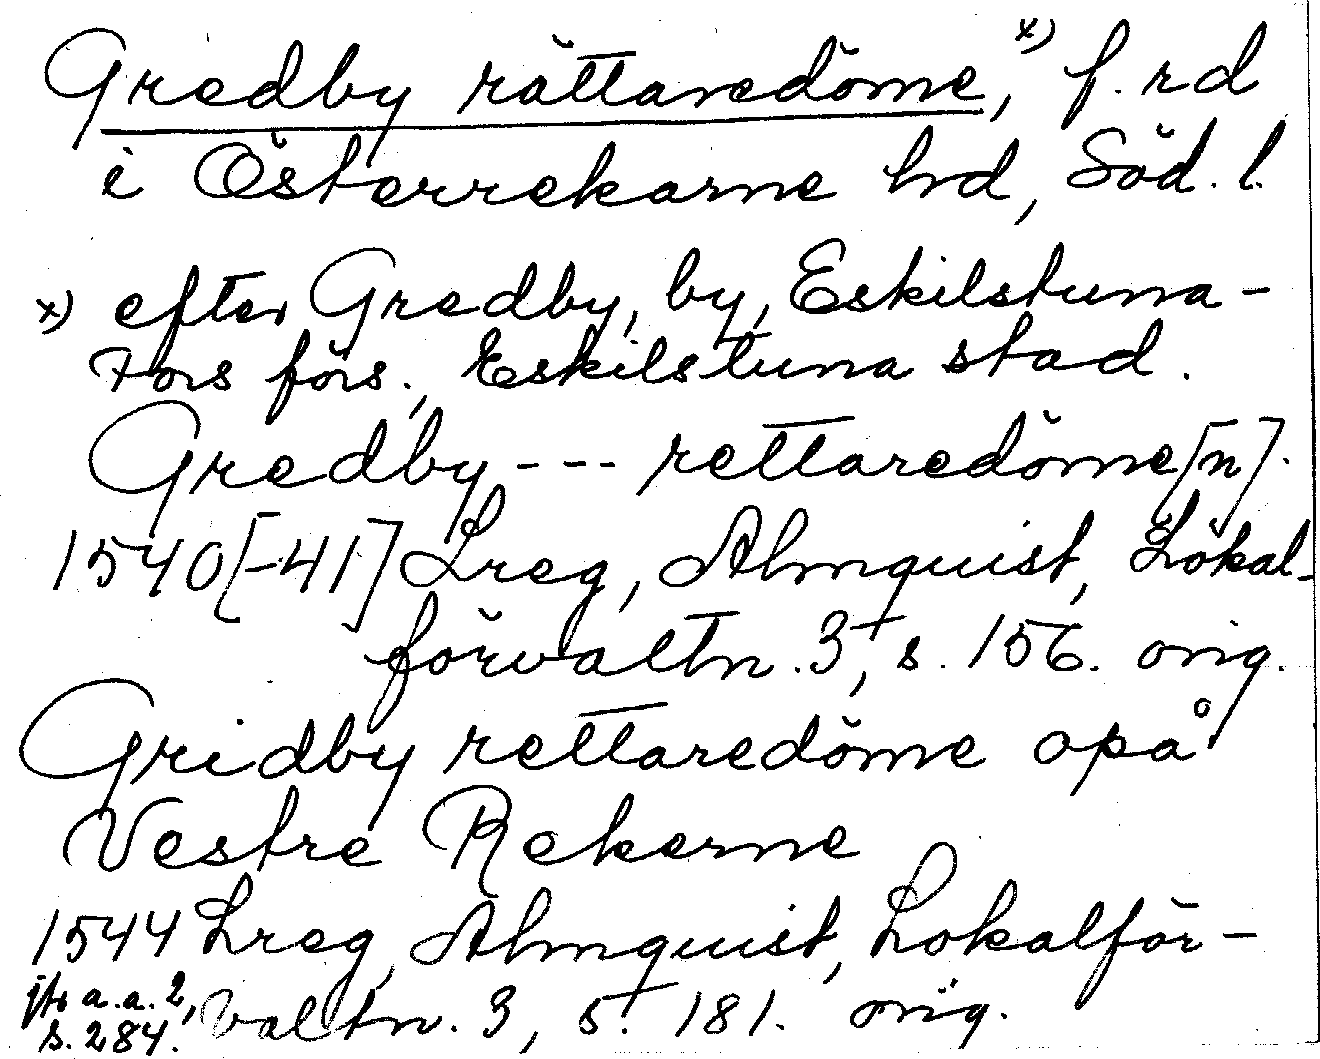 Gredby rättaredöme,x) f.rd
i Österrekarne hd, Söd. l.
x) efter Gredby, by, Eskilstuna-
Fors förs., Eskilstuna stad.
Gredby --- rettaredöme[n].
1540[-41] Lreg, Almquist, Lokal-
förvaltn. 3, s. 156. orig.
Gridby rettaredöme opå
Vestre Rekerne
1544 Lreg, Almquist, Lokalför-
valtn. 3, s. 181. orig.
jfr a.a. 2,
s. 284.